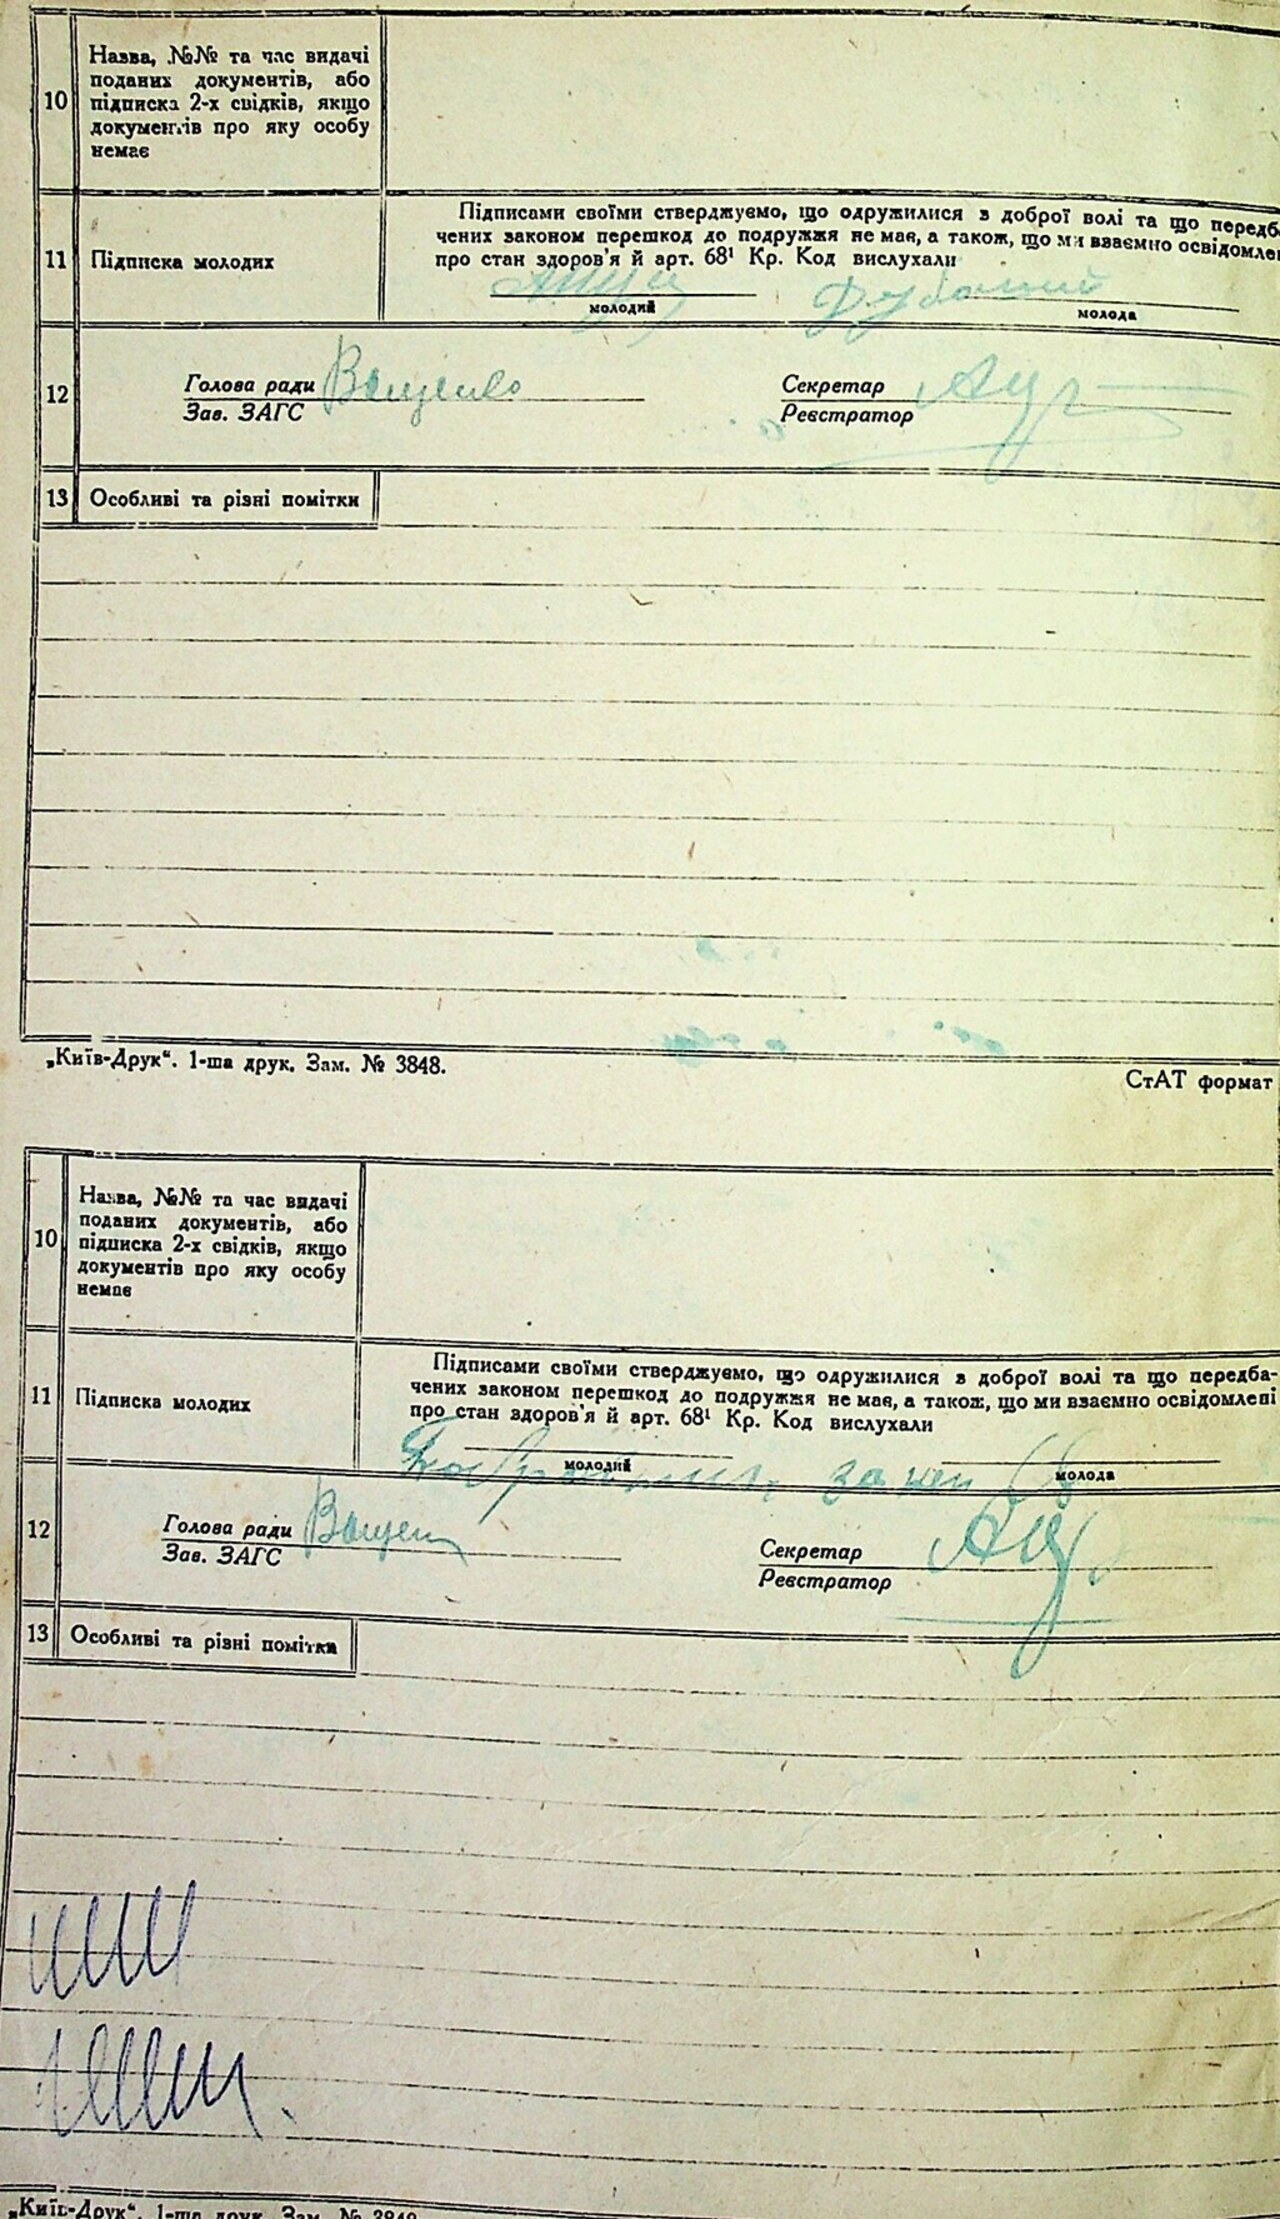 10
Назва, №№ та час видачі
поданих документів, або
підписка 2-х свідків, якщо
документів про яку особу
немає
11
Підписка молодих
Підписами своїми стверджуємо, що одружилися з доброї волі та що передба
чених законом перешкод до подружжя не має, а також, що ми взаємно освідомле
про стан здоров'я й арт. 68¹ Кр. Код вислухали
молодий
молода
12
Голова ради Ващенко
Зав. ЗАГС
Секретар
Реєстратор
13
Особливі та різні помітки
„Київ-Друк“. 1-ша друк. Зам. № 3848.
СтАТ формат
10
Назва, №№ та час видачі
поданих документів, або
підписка 2-х свідків, якщо
документів про яку особу
немає
11
Підписка молодих
Підписами своїми стверджуємо, що одружилися з доброї волі та що передба-
чених законом перешкод до подружжя не має, а також, що ми взаємно освідомлені
про стан здоров'я й арт. 68¹ Кр. Код вислухали
молодий
молода
12
Голова ради
Зав. ЗАГС
Секретар
Реєстратор
13
Особливі та різні помітки
„Київ-Друк“. 1-ша друк. Зам. № 3848.